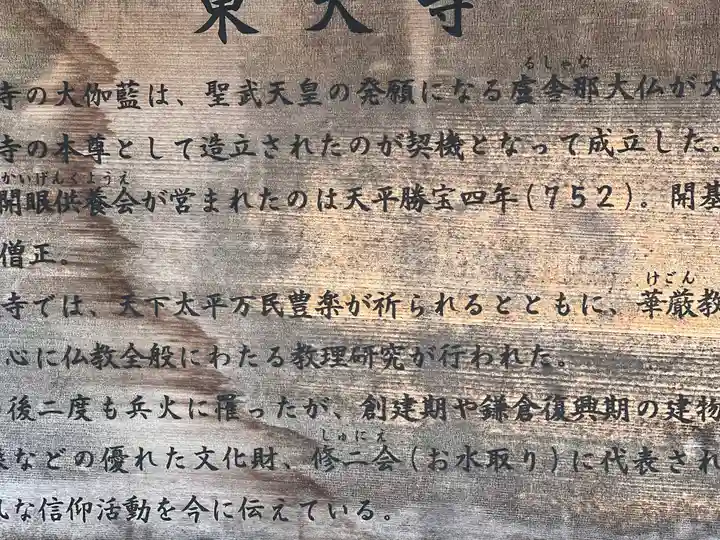 東大寺
るしゃな
寺の大伽藍は、聖武天皇の発願になる盧舎那大仏が大
寺の本尊として造立されたのが契機となって成立した。
かいげんくようえ
開眼供養会が営まれたのは天平勝宝四年(752)。開基
僧正。
けごん
寺では、天下太平万民豊楽が祈られるとともに、華厳教
心に仏教全般にわたる教理研究が行われた。
後二度も兵火に罹ったが、創建期や鎌倉復興期の建物
しゅにえ
などの優れた文化財、修二会(お水取り)に代表され
な信仰活動を今に伝えている。